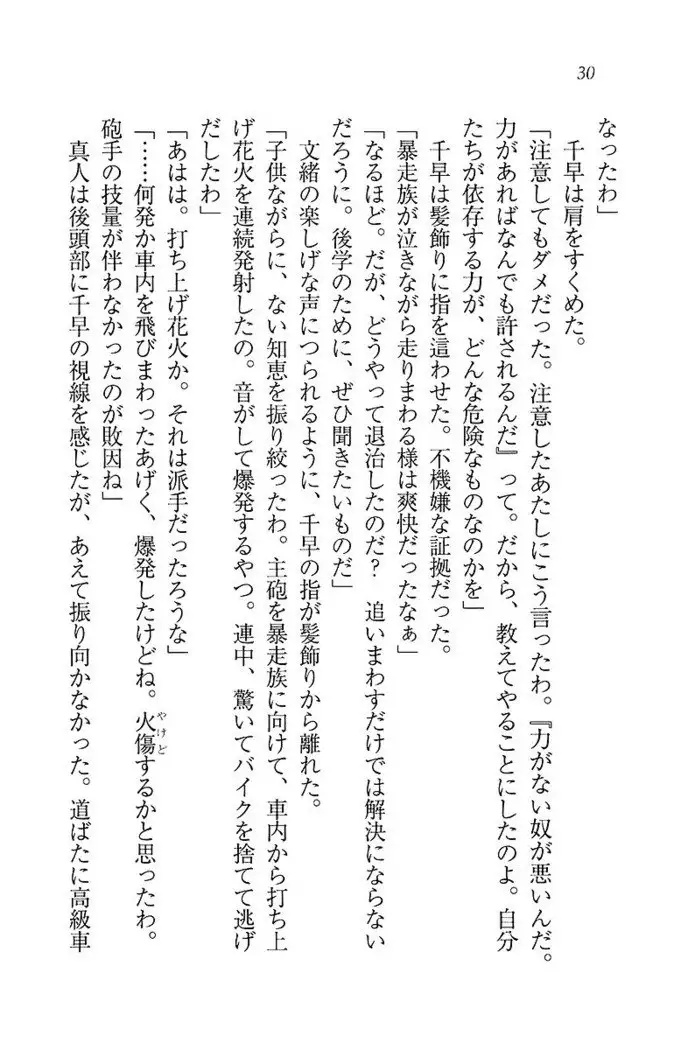 30
なったわ」
　千早は肩をすくめた。
「注意してもダメだった。注意したあたしにこう言ったわ。『力がない奴が悪いんだ。
力があればなんでも許されるんだ』って。だから、教えてやることにしたのよ。自分
たちが依存する力が、どんな危険なものなのかを」
　千早は髪飾りに指を這わせた。不機嫌な証拠だった。
「暴走族が泣きながら走りまわる様は爽快だったなぁ」
「なるほど。だが、どうやって退治したのだ？　追いまわすだけでは解決にならない
だろうに。後学のために、ぜひ聞きたいものだ」
　文緒の楽しげな声につられるように、千早の指が髪飾りから離れた。
「子供ながらに、ない知恵を振り絞ったわ。主砲を暴走族に向けて、車内から打ち上
げ花火を連続発射したの。音がして爆発するやつ。連中、驚いてバイクを捨てて逃げ
だしたわ」
「あはは。打ち上げ花火か。それは派手だったろうな」
「……何発か車内を飛びまわったあげく、爆発したけどね。火傷するかと思ったわ。
やけど
砲手の技量が伴わなかったのが敗因ね」
　真人は後頭部に千早の視線を感じたが、あえて振り向かなかった。道ばたに高級車